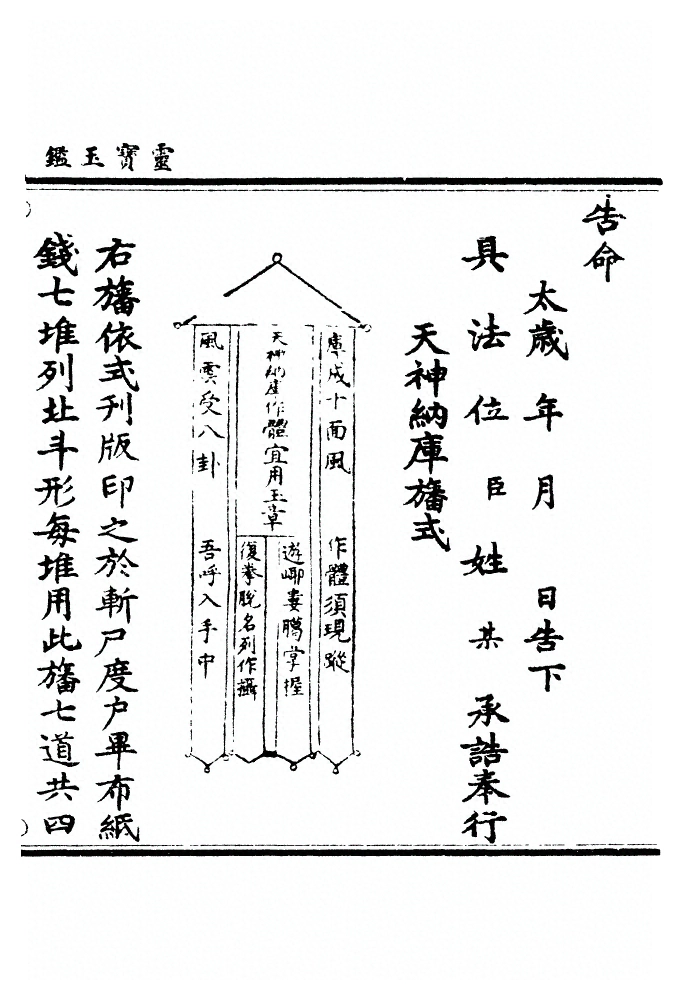 靈寶玉鑑
告命
太歲 年 月 日告下
具法位臣姓某承誥奉行
天神納庫旛式
庫成十面風 作體須現蹤
天神納庫作體宜用玉章
遊㖿婁騰掌握
復拳脫名列作攝
風雲受八卦 吾呼入手中
右旛依式刋版印之於斬尸度户畢布紙
錢七堆列北斗形每堆用此旛七道共四